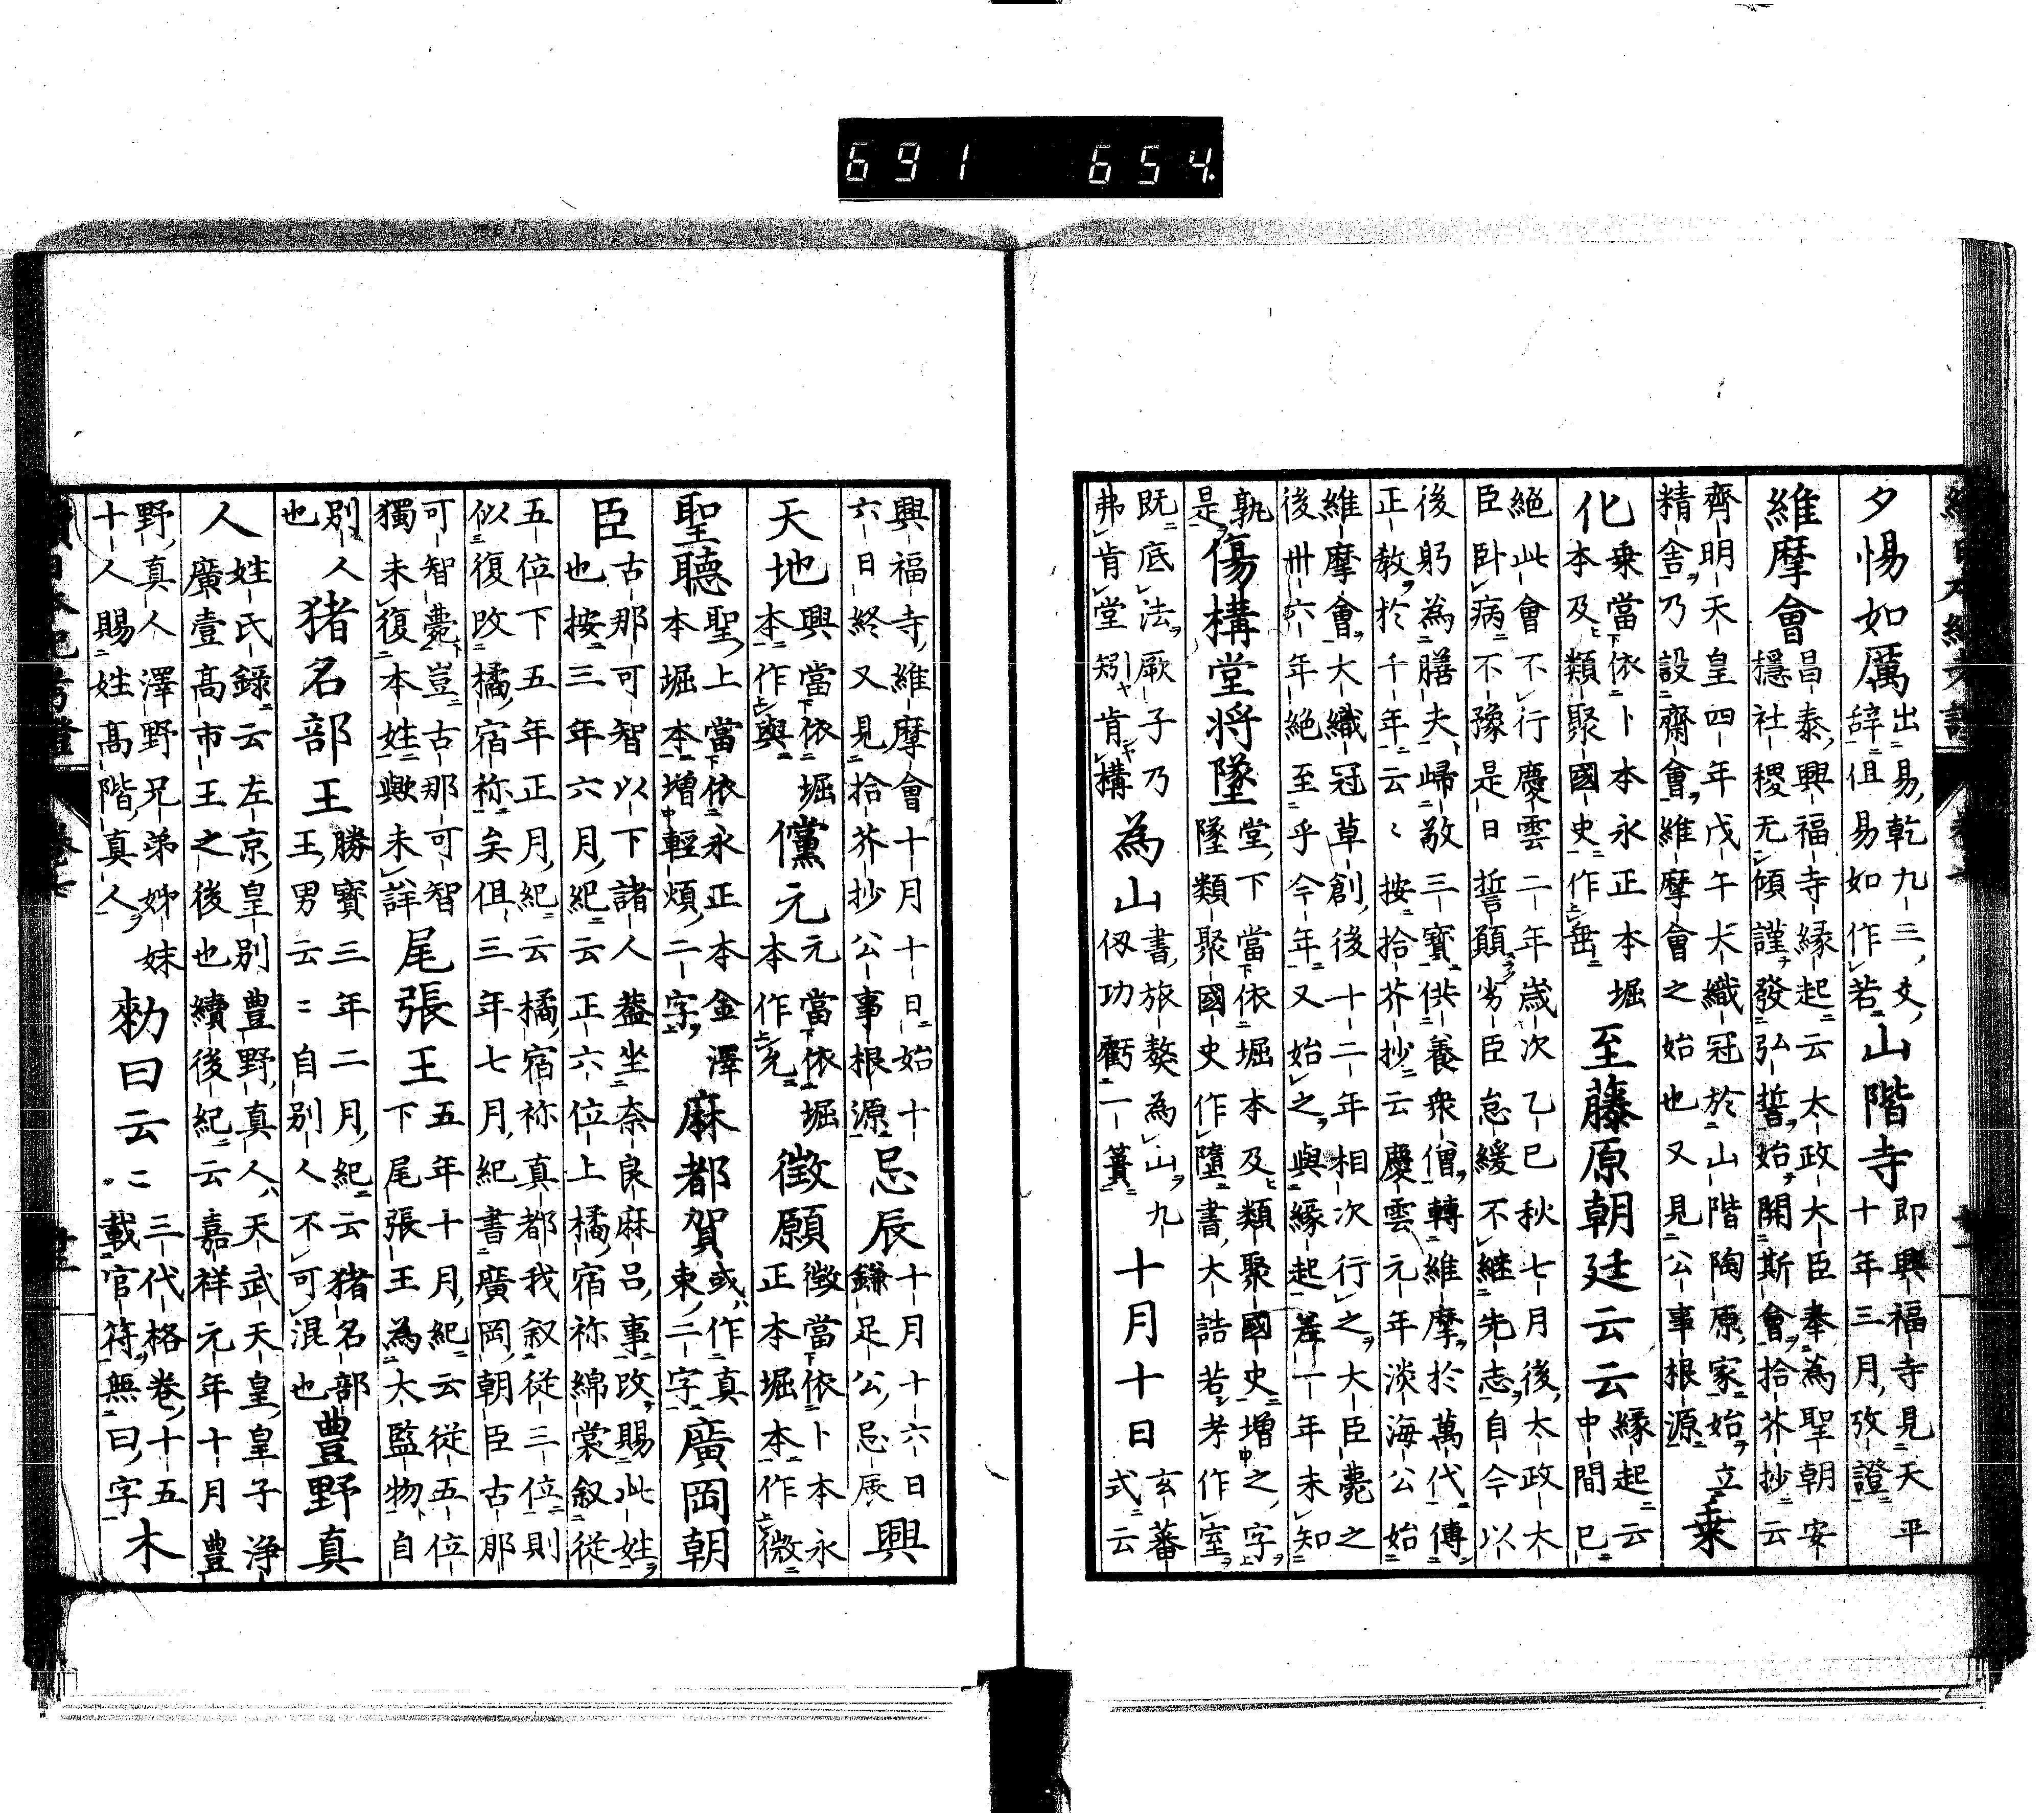 夕惕如厲 出易乾九三爻辞但易如作若 山階寺 即興福寺見天平十年三月攷證
維摩會 昌泰興福寺縁起云太政大臣奉為聖朝安穩社稷无傾謹發弘誓始開斯會拾芥抄云
齊明天皇四年戊午大織冠於山階陶原家始立精舎乃設齋會維摩會之始也又見公事根源 乗
化 乗當依卜本永正本堀本及類聚國史作垂 至藤原朝廷云云 縁起云中間已
絶此會不行慶雲二年歳次乙巳秋七月後太政大臣臥病不豫是日誓願劣臣怠緩不継先志自今以
後躬為膳夫歸敬三寳供養衆僧轉維摩於萬代傳正教於千年云〻按拾芥抄云慶雲元年淡海公始
維摩會大織冠草創後十二年相次行之大臣薨之後卅六年絶至乎今年又始之與縁起差一年未知
孰是 傷構堂将墜 堂下當依堀本及類聚國史増之字墜類聚國史作墮書大誥若考作室
既底法厥子乃弗肯堂矧肯構 為山 書旅獒為山九仭功虧一簣 十月十日 玄蕃式云
興福寺維摩會十月十日始十六日終又見拾芥抄公事根源 忌辰 十月十六日鎌足公忌辰 興
天地 興當依堀本作與 儻元 元當依堀本作允 徴願 徴當依卜本永正本堀本作微
聖聽 聖上當依永正本金澤本堀本増輕煩二字 麻都賀 或作真束二字 廣岡朝
臣 古那可智以下諸人蓋坐奈良麻呂事改賜此姓也按三年六月紀云正六位上橘宿祢綿裳叙従
五位下五年正月紀云橘宿祢真都我叙従三位則似復改橘宿祢矣但三年七月紀書廣岡朝臣古那
可智薨豈古那可智獨未復本姓歟未詳 尾張王 五年十月紀云従五位下尾張王為大監物自
別人也 猪名部王 勝寳三年二月紀云猪名部王王男云〻自別人不可混也 豊野真
人 姓氏録云左京皇別豊野真人天武天皇皇子浄廣壹高市王之後也續後紀云嘉祥元年十月豊
野真人澤野兄弟姉妹十人賜姓高階真人 勅曰云〻 三代格巻十五載官符無曰字 木